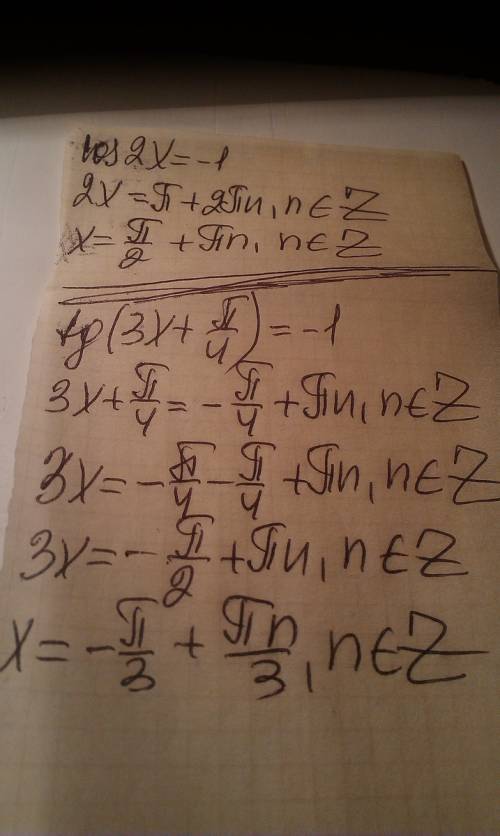 cos2x=-1
2x=π+2πn, n∈Z
x=π/2+πn, n∈Z
tg(3x+π/4)=-1
3x+π/4=-π/4+πn, n∈Z
3x=-π/4-π/4+πn, n∈Z
3x=-π/2+πn, n∈Z
x=-π/3+πn/3, n∈Z